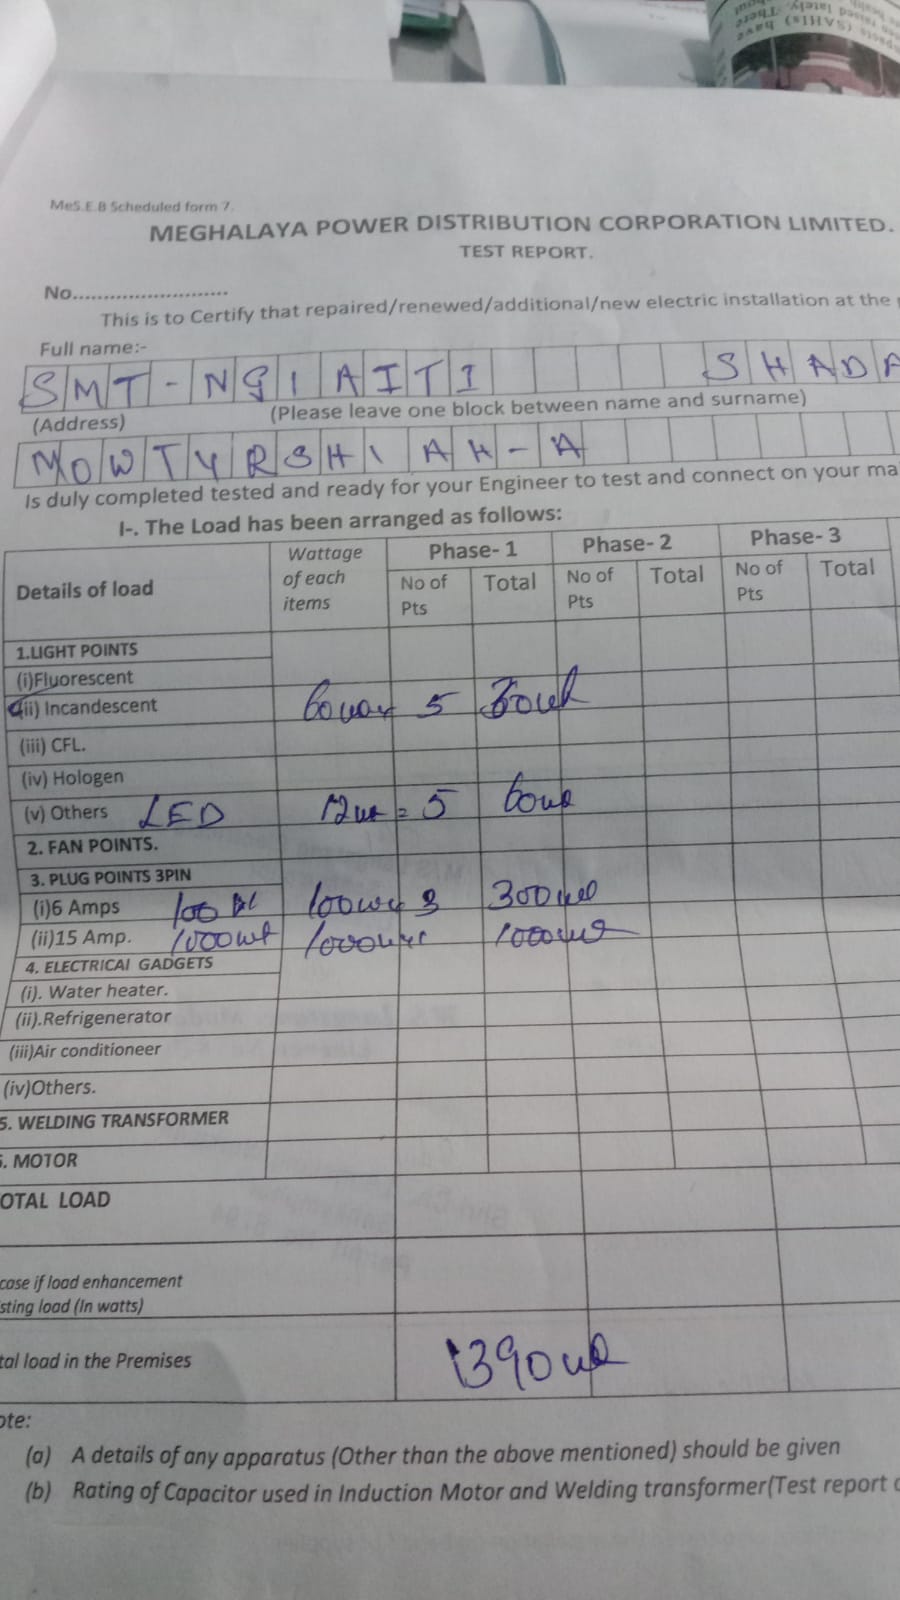 MeS.E.B Scheduled form 7.
MEGHALAYA POWER DISTRIBUTION CORPORATION LIMITED.
TEST REPORT.
No..........................
This is to Certify that repaired/renewed/additional/new electric installation at the
Full name:-
SMT- NGIAITI SHADA
(Address) (Please leave one block between name and surname)
MOWTYRSHIAH-A
Is duly completed tested and ready for your Engineer to test and connect on your ma
I-. The Load has been arranged as follows:
Details of load Wattage of each items Phase- 1 Phase- 2 Phase- 3
No of Pts Total No of Pts Total No of Pts Total
1.LIGHT POINTS
(i)Fluorescent
(ii) Incandescent 5
(iii) CFL.
(iv) Hologen
(v) Others LED 5
2. FAN POINTS.
3. PLUG POINTS 3PIN
(i)6 Amps 100 3
(ii)15 Amp. 1000wt
4. ELECTRICAl GADGETS
(i). Water heater.
(ii).Refrigenerator
(iii)Air conditioneer
(iv)Others.
5. WELDING TRANSFORMER
. MOTOR
OTAL LOAD
case if load enhancement
sting load (In watts)
tal load in the Premises
ote:
(a) A details of any apparatus (Other than the above mentioned) should be given
(b) Rating of Capacitor used in Induction Motor and Welding transformer(Test report